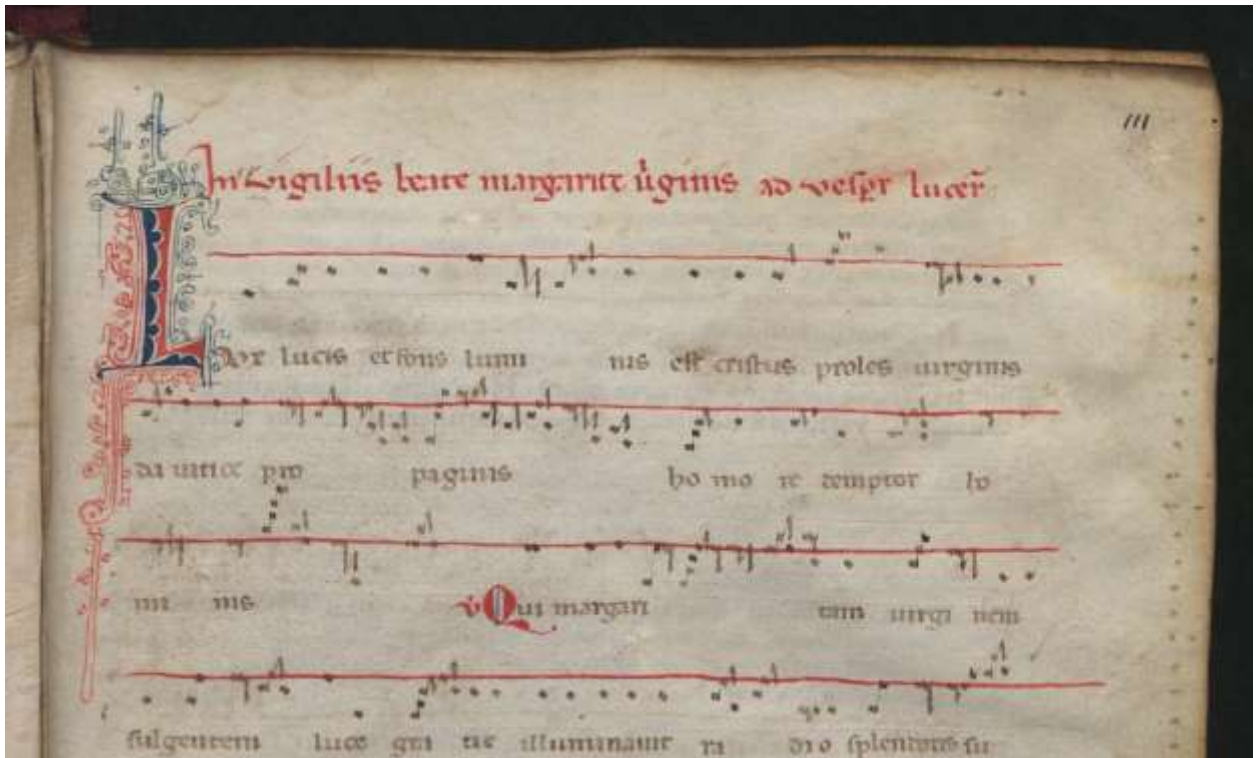 111
In vigiliis beate margarite v̾ginis ad vesper lucer̄
Lux lucis et fons lumi nis est cristus proles uirginis
da uitice pro paginis ho mo re demptor ho
mi nis ℣ Qui margari tam uirgi nem
fulgentem luce gra tie illuminauit ra dio splendoris su